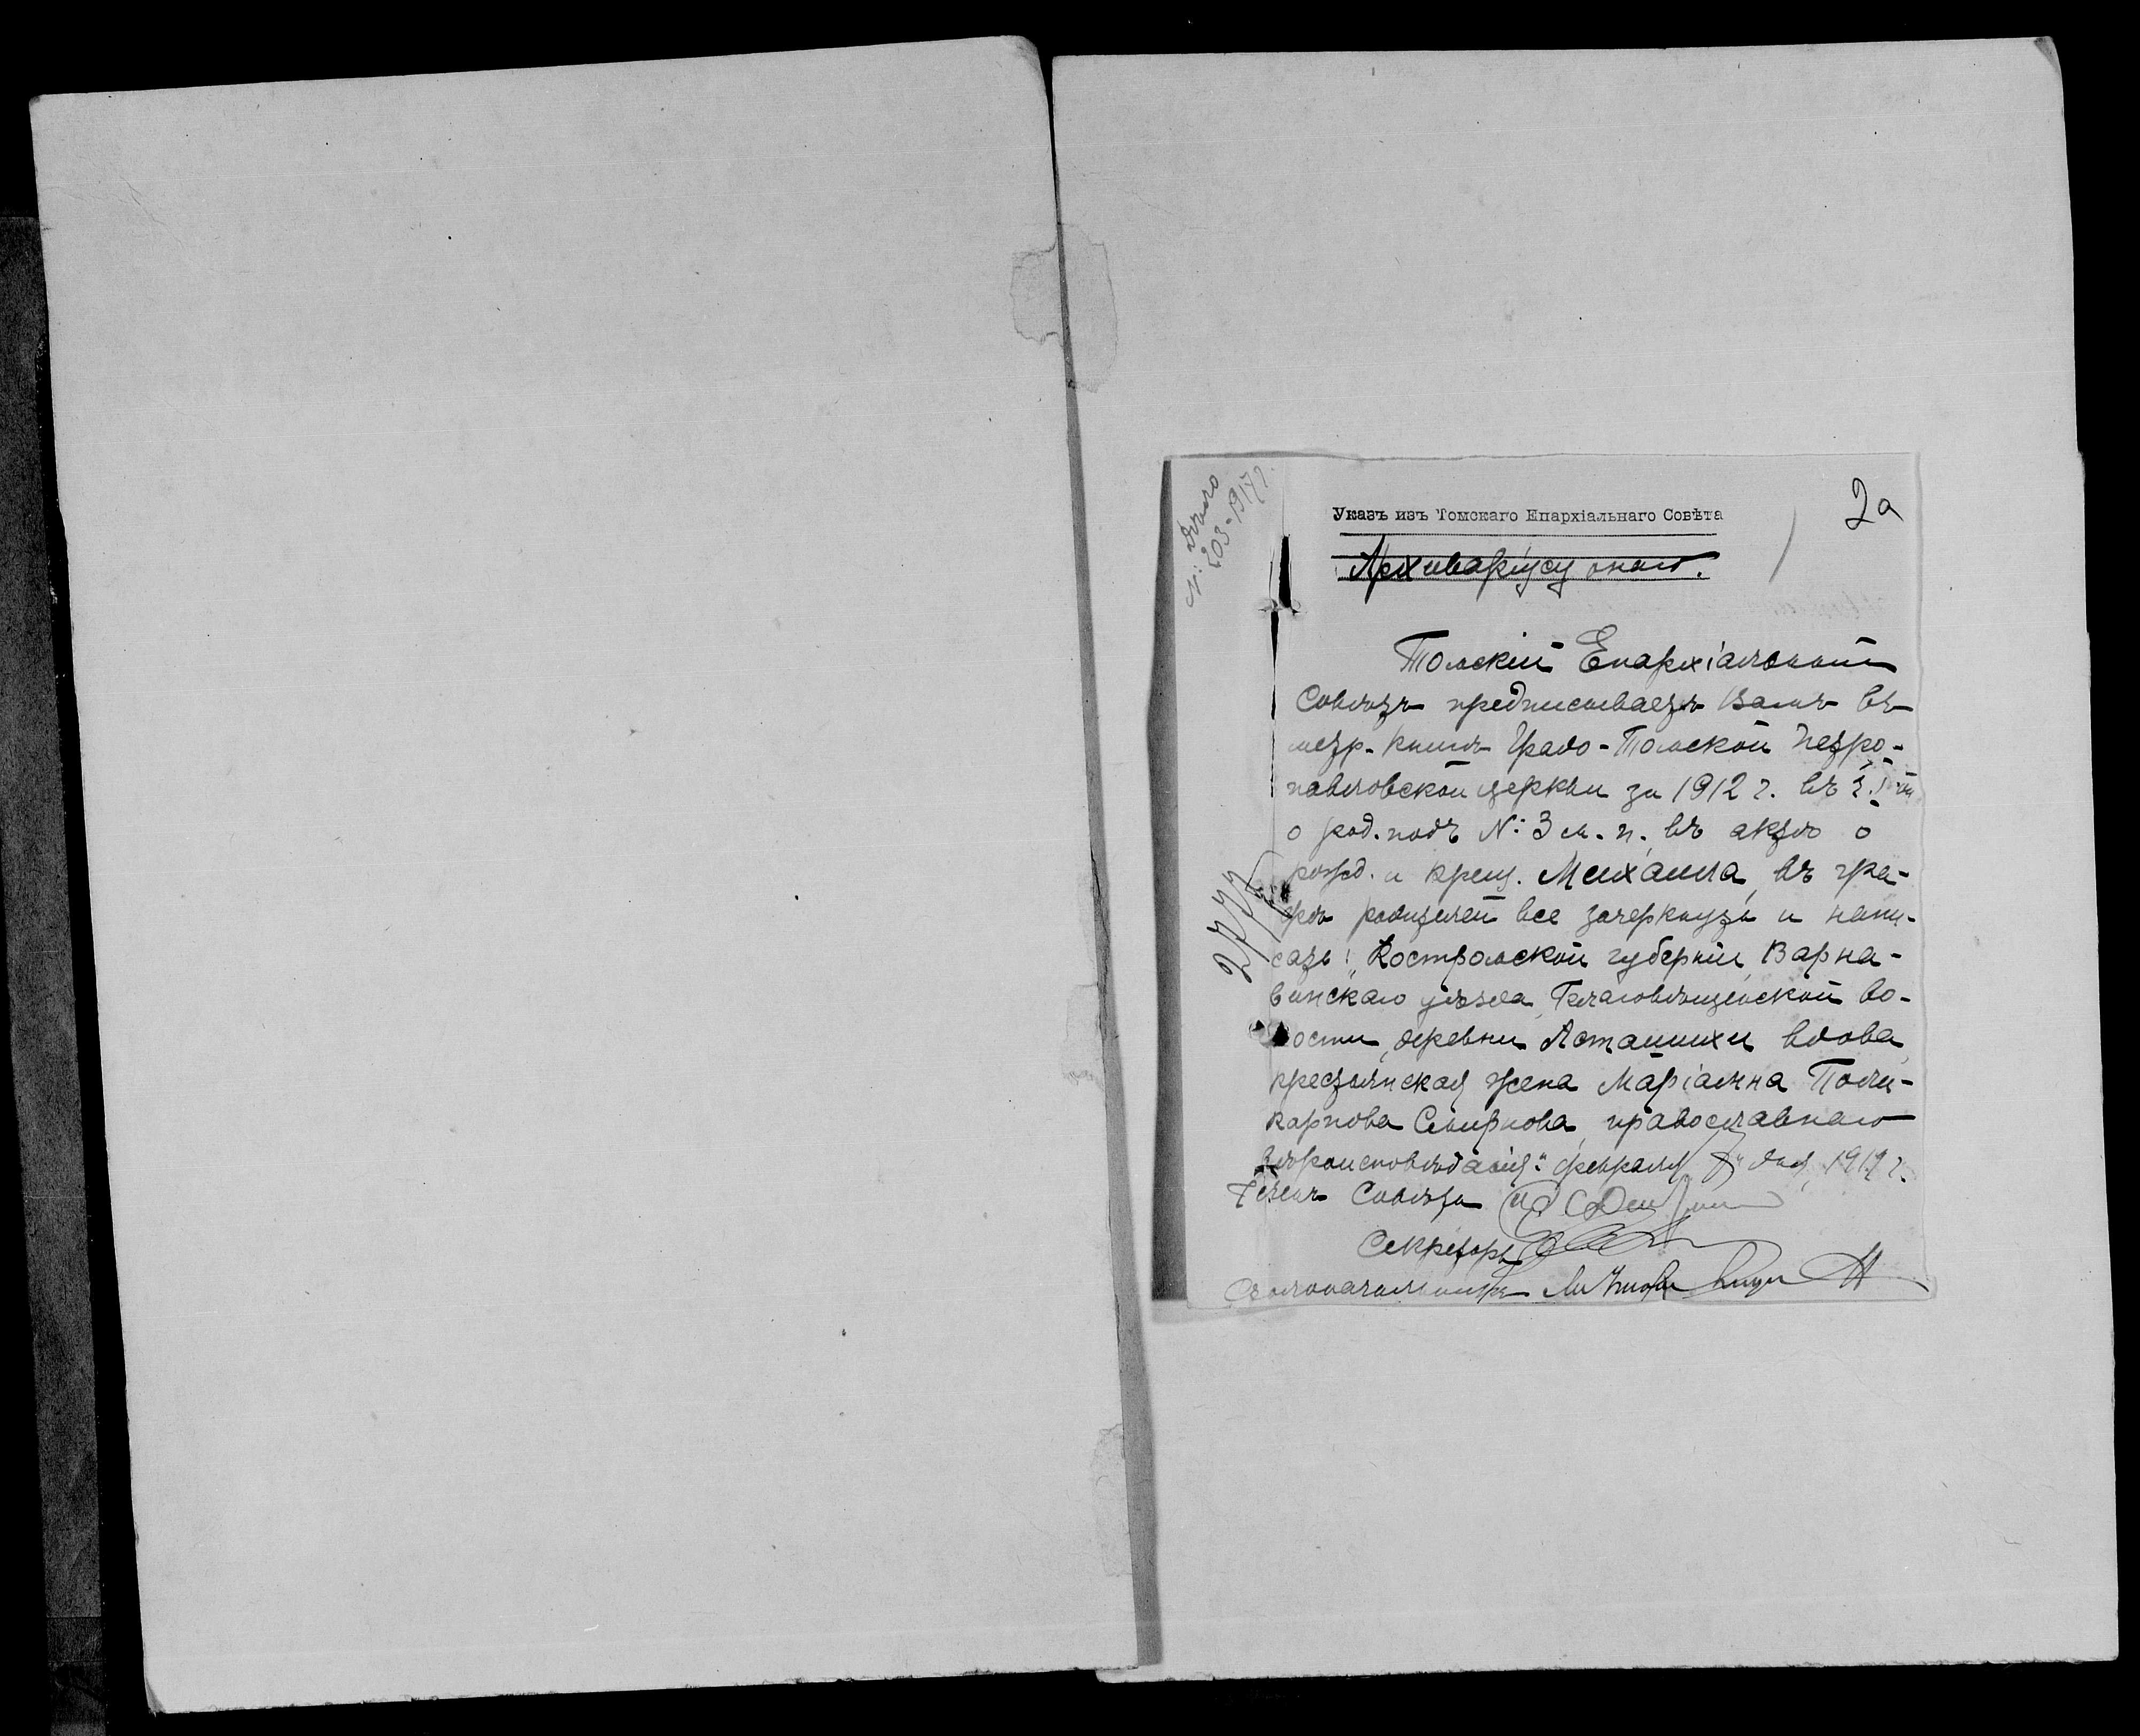 2а
№: дѣло
203-1917 г.
Указъ изъ Томскаго Епархіальнаго Совѣта
Архиваріусу онаго.
Томскій Епархіальный
Совѣтъ предписываетъ Вамъ въ
метр. книгѣ Градо-Томской Петро-
павловской церкви за 1912 г. въ
о род. подъ №: 3 м. п., въ актѣ о
рожд. и крещ. Михаила, въ гра-
фѣ родителей все зачеркнуть и напи-
сать: „Костромской губерніи, Варна-
винскаго уѣзда, Благовѣщенской во-
лости, деревни Асташихи вдова,
крестьянская жена Маріамна Поли-
карпова Смирнова, православнаго
вѣроисповѣданія“. февраля дня, 1919 г.
Членъ Совѣта
Секретарь
Столоначальникъ